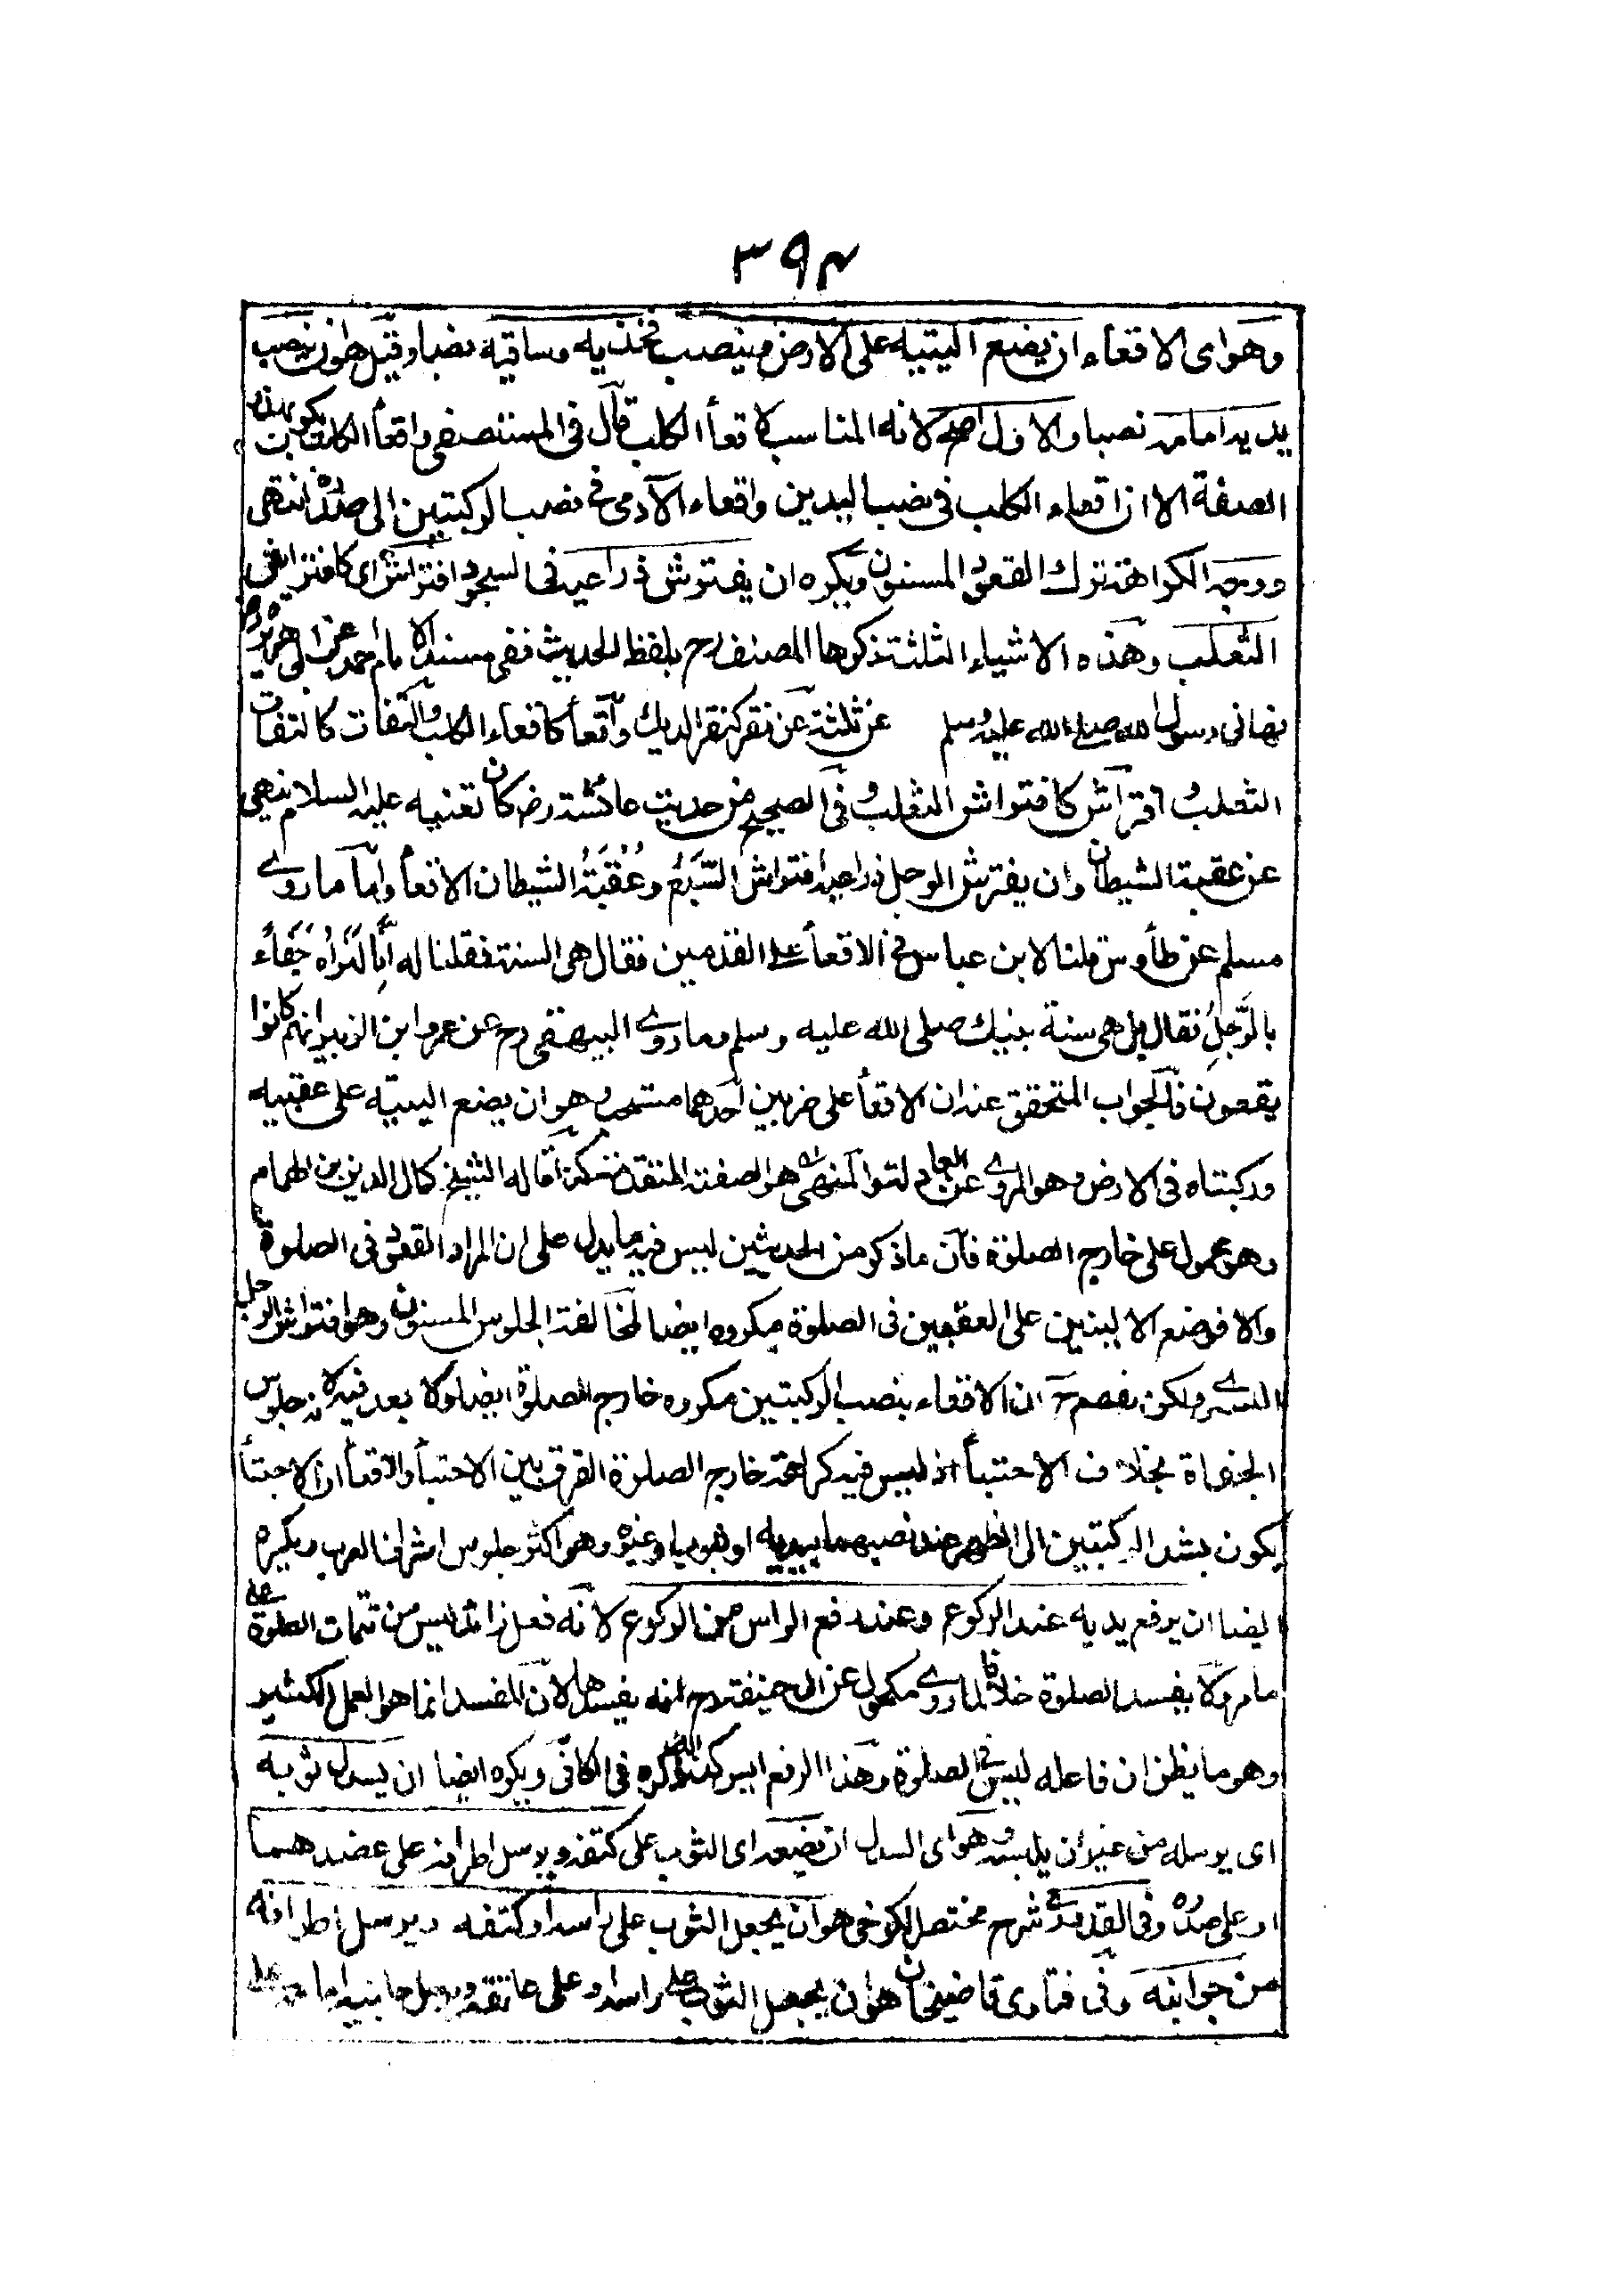 ۳۹۴
وهو اى الاقعاء ان يضع اليتيه على الارض وينصب فخذيه وساقيه نصبا وقيل هو ان ينصب
يديه امامه نصبا والاول اصح لانه المناسب لاقعأ الكلب قال فى المستصفى واقعأ الكلب يكون بهذه
الصفة الا ان اقعاء الكلب فى نصب اليدين واقعاء الآدمى فى نصب الركبتين الى صدره انتهى
ووجه الكراهة ترك القعود المسنون ويكره ان يفترش ذراعيه فى السجود افتراش اى كافتراش
الثعلب وهذه الاشياء الثلثة ذكرها المصنف رح بلفظ الحديث ففى مسند الامام احمد عن ابى هريرة رض
نهانى رسول الله صلى الله عليه وسلم عن ثلثة عن نقر كنقر الديك واقعأ كاقعاء الكلب والتفات كالتفات
الثعلب افتراش كافتراش الثعلب وفى الصحيح من حديث عائشة رض كان تعنيه عليه السلام ينهى
عن عقبة الشيطان وان يفترش الرجل ذراعيه افتراش السَّبُع وعُقْبَةُ الشيطان الاقعأ واما ما روے
مسلم عن طاوس قلنا لابن عباس فى الاقعأ على القدمين فقال هى السنة فقلنا له اِنَّا لَنَراهُ جَفَاءً
بالرَّجُلِ فقال بل هى سنة نبيك صلى الله عليه وسلم وما روے البيهقى رح عن عمر وابن الزبير انهم كانوا
يقعون فالجواب المتحقق عنه ان الاقعأ على ضربين احدهما مستحب وهو ان يضع اليتيه على عقبيه
وركبتاه فى الارض وهو المروے عن العبادلة والمنهى هو الصفة المتقدمة كذا قاله الشيخ كمال الدين بن الهمام
وهو محمول على خارج الصلوة فان ما ذكر من الحديثين ليس فيه ما يدل على ان المراد القعود فى الصلوة
والا فوضع الاليتين على العقبين فى الصلوة مكروه ايضا لمخالفة الجلوس المسنون وهو افتراش الرجل
اليسرے ولكن يفهم ح ان الاقعاء بنصب الركبتين مكروه خارج الصلوة ايضا ولا بعد فيه لانه جلوس
الجفاة بخلاف الاحتبأ اذ ليس فيه كراهة خارج الصلوة الفرق بين الاحتبأ والاقعأ ان الاحتبأ
يكون بشد الركبتين الى الظهر عند نصبهما بيديه او بثوب او غيره وهو اكثر جلوس اشراف العرب ويكره
ايضا ان يرفع يديه عند الركوع وعند رفع الراس من الركوع لانه فعل زائد ليس من تتمات الصلوة على
ما مر ولا يفسد الصلوة خلافا لما روے مكحول عن ابى حنيفة رح انه يفسدها لان المفسد انما هو العمل الكثير
وهو ما يظن ان فاعله ليس فى الصلوة وهذا الرفع ليس كذلك ذكره فى الكافى ويكره ايضا ان يسدل ثوبه
اى يرسله من غير ان يلبسه وهو اى السدل ان يضعه اى الثوب على كتفه ويرسل اطرافه على عضديهما
او على صدره وفى القدورے شرح مختصر الكرخى هو ان يجعل الثوب على راسه او كتفه ويرسل اطرافه
من جوانبه وفى فتاوى قاضيخان هو ان يجعل الثوب على راسه او على عاتقه ويرسل جانبيه امامه على